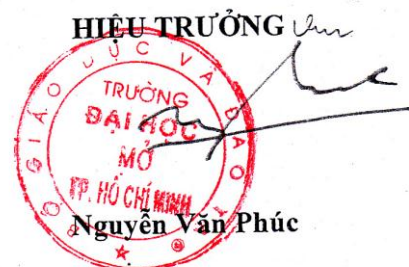 HIỆU TRƯỞNG
BỘ GIÁO DỤC VÀ ĐÀO TẠO
TRƯỜNG
ĐẠI HỌC
MỞ
TP. HỒ CHÍ MINH
Nguyễn Văn Phúc